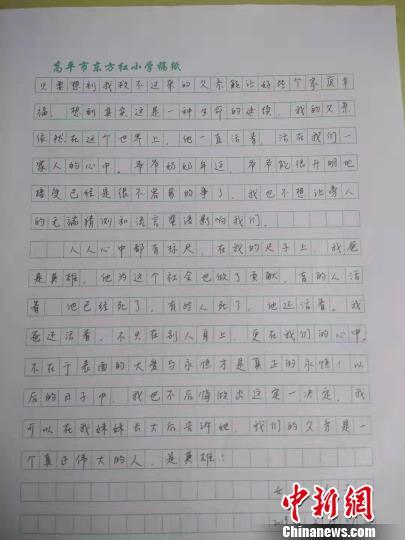 高平市东方红小学稿纸
只要想到我救不过来的父亲能让好些个家庭幸
福，想到其实这是一种生命的延续，我的父亲
依然在这个世界上，他一直活着，活在我们一
家人的心中。爷爷奶奶年迈，爷爷能很开明地
接受已经是很不容易的事了，我也不想让旁人
的无端猜测和流言蜚语影响我们。
人人心中都有标尺，在我的尺子上，我爸
是英雄，他为这个社会也做了贡献，有的人活
着 他已经死了，有些人死了，他还活着。我
爸还活着，不只在别人身上，更在我们的心中。
不在于表面的大爱与永恒才是真正的永恒！以
后的日子中，我也不后悔做出这定一决定，我
可以在我妹妹长大后告诉她，我们的父亲是一
个真正伟大的人，是英雄！
女
中新网